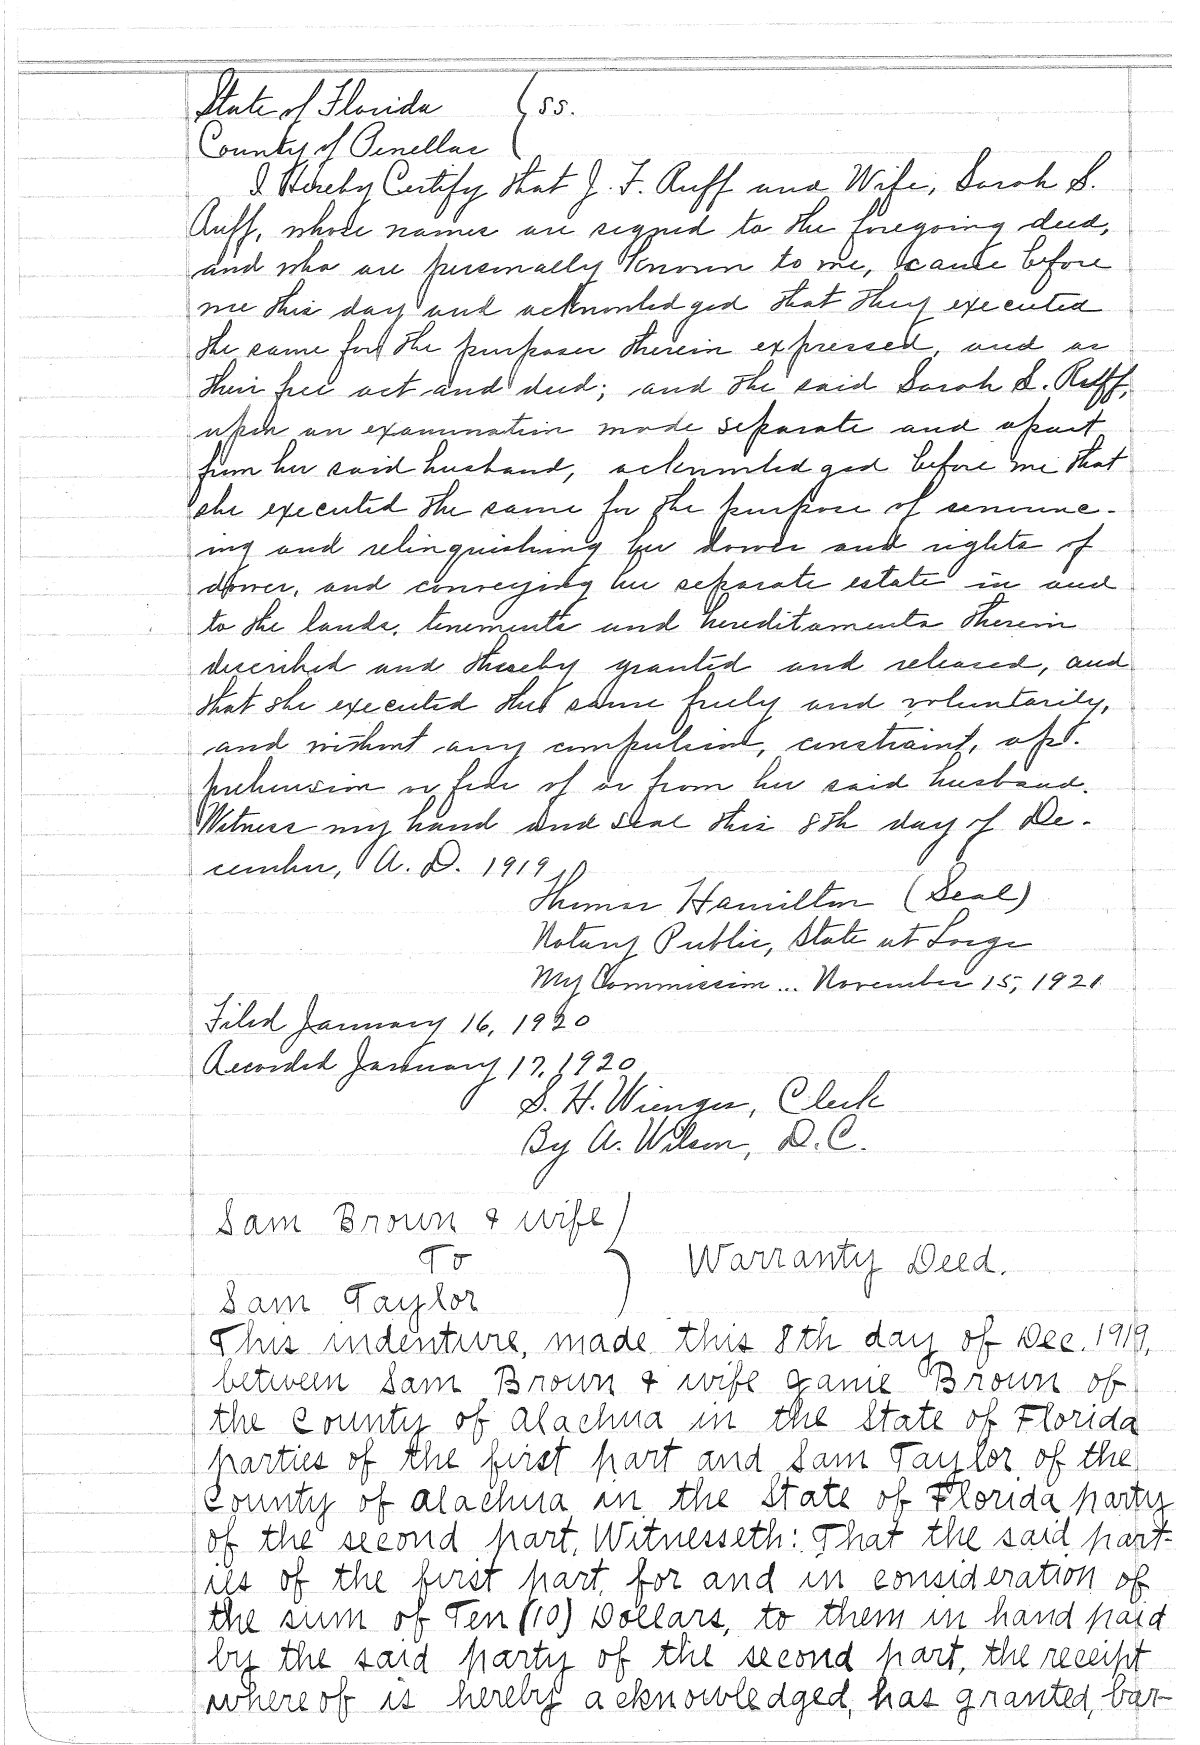 State of Florida } ss.
County of Pinellas
I Hereby Certify that J. F. Ruff and Wife, Sarah S.
Ruff, whose names are signed to the foregoing deed,
and who are personally known to me, came before
me this day and acknowledged that they executed
the same for the purposes therein expressed, and as
their free act and deed; and the said Sarah S. Ruff,
upon an examination made separate and apart
from her said husband, acknowledged before me that
she executed the same for the purpose of renounc-
ing and relinquishing her dower and rights of
dower, and conveying her separate estate in and
to the lands, tenements and hereditaments therein
described and thereby granted and released, and
that she executed the same freely and voluntarily,
and without any compulsion, constraint, ap-
prehension or fear of or from her said husband.
Witness my hand and seal this 8th day of De-
cember, A. D. 1919
Thomas Hamilton (Seal)
Notary Public, State at Large
My Commission ... November 15, 1921
Filed January 16, 1920
Recorded January 17, 1920
S. H. Wienges, Clerk
By A. Wilson, D. C.
Sam Brown & wife
To } Warranty Deed.
Sam Taylor
This indenture, made this 8th day of Dec. 1919,
between Sam Brown & wife Janie Brown of
the County of Alachua in the State of Florida
parties of the first part and Sam Taylor of the
County of Alachua in the State of Florida party
of the second part, Witnesseth: That the said part-
ies of the first part, for and in consideration of
the sum of Ten (10) Dollars, to them in hand paid
by the said party of the second part, the receipt
whereof is hereby acknowledged, has granted, bar-